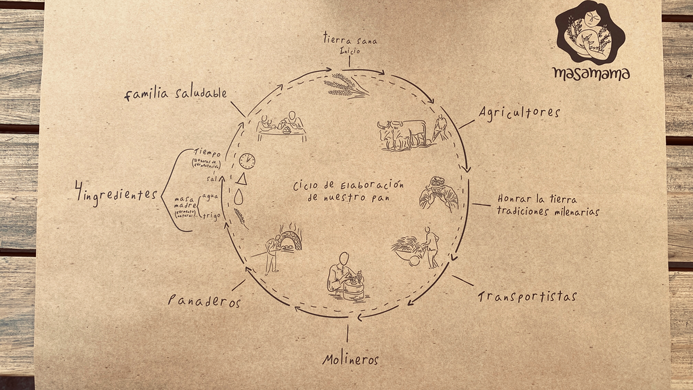 masamama
tierra sana
Inicio
Agricultores
Honrar la tierra
tradiciones milenarias
Transportistas
Molineros
Panaderos
4 ingredientes
Tiempo
sal
agua
masa
madre
trigo
familia saludable
Ciclo de Elaboración
de nuestro pan